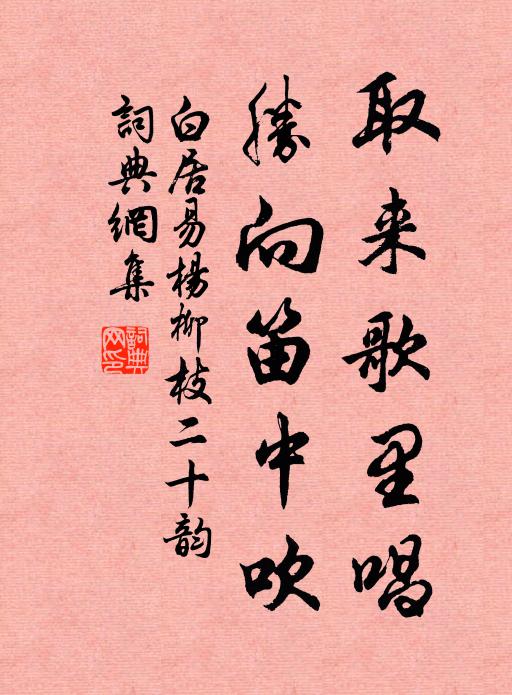 取来歌里唱
勝向笛中吹
白居易楊柳枝二十韵
詞典網集
詞典网印